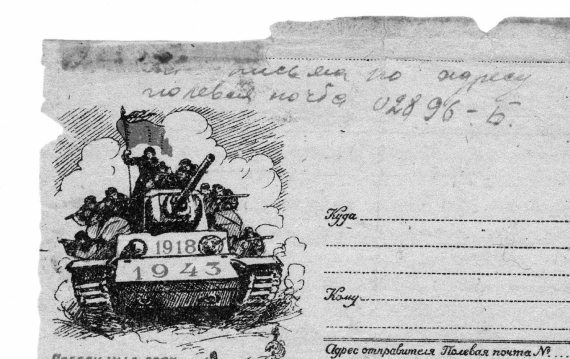 письма по адресу
полевая почта 02896-Б.
1918
1943
Куда
Кому
Адрес отправителя Полевая почта №